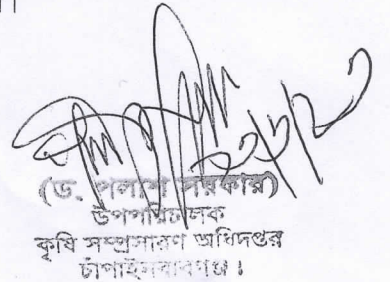 (ড. পলাশ সরকার)
উপপরিচালক
কৃষি সম্প্রসারণ অধিদপ্তর
চাঁপাইনবাবগঞ্জ।